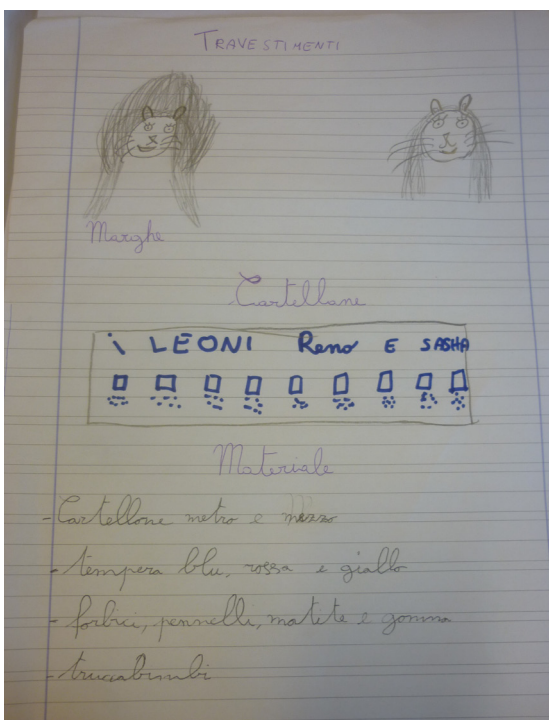 TRAVESTIMENTI
Marghe
Cartellone
i LEONI Reno E SASHA
Materiale
- Cartellone metro e mezzo
- tempera blu, rossa e giallo
- forbici, pennelli, matite e gomma
- truccabimbi